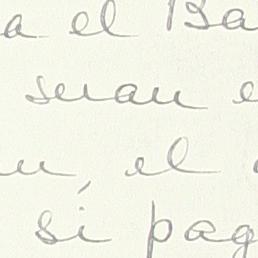 a el Ba
seran e
, el
si pag